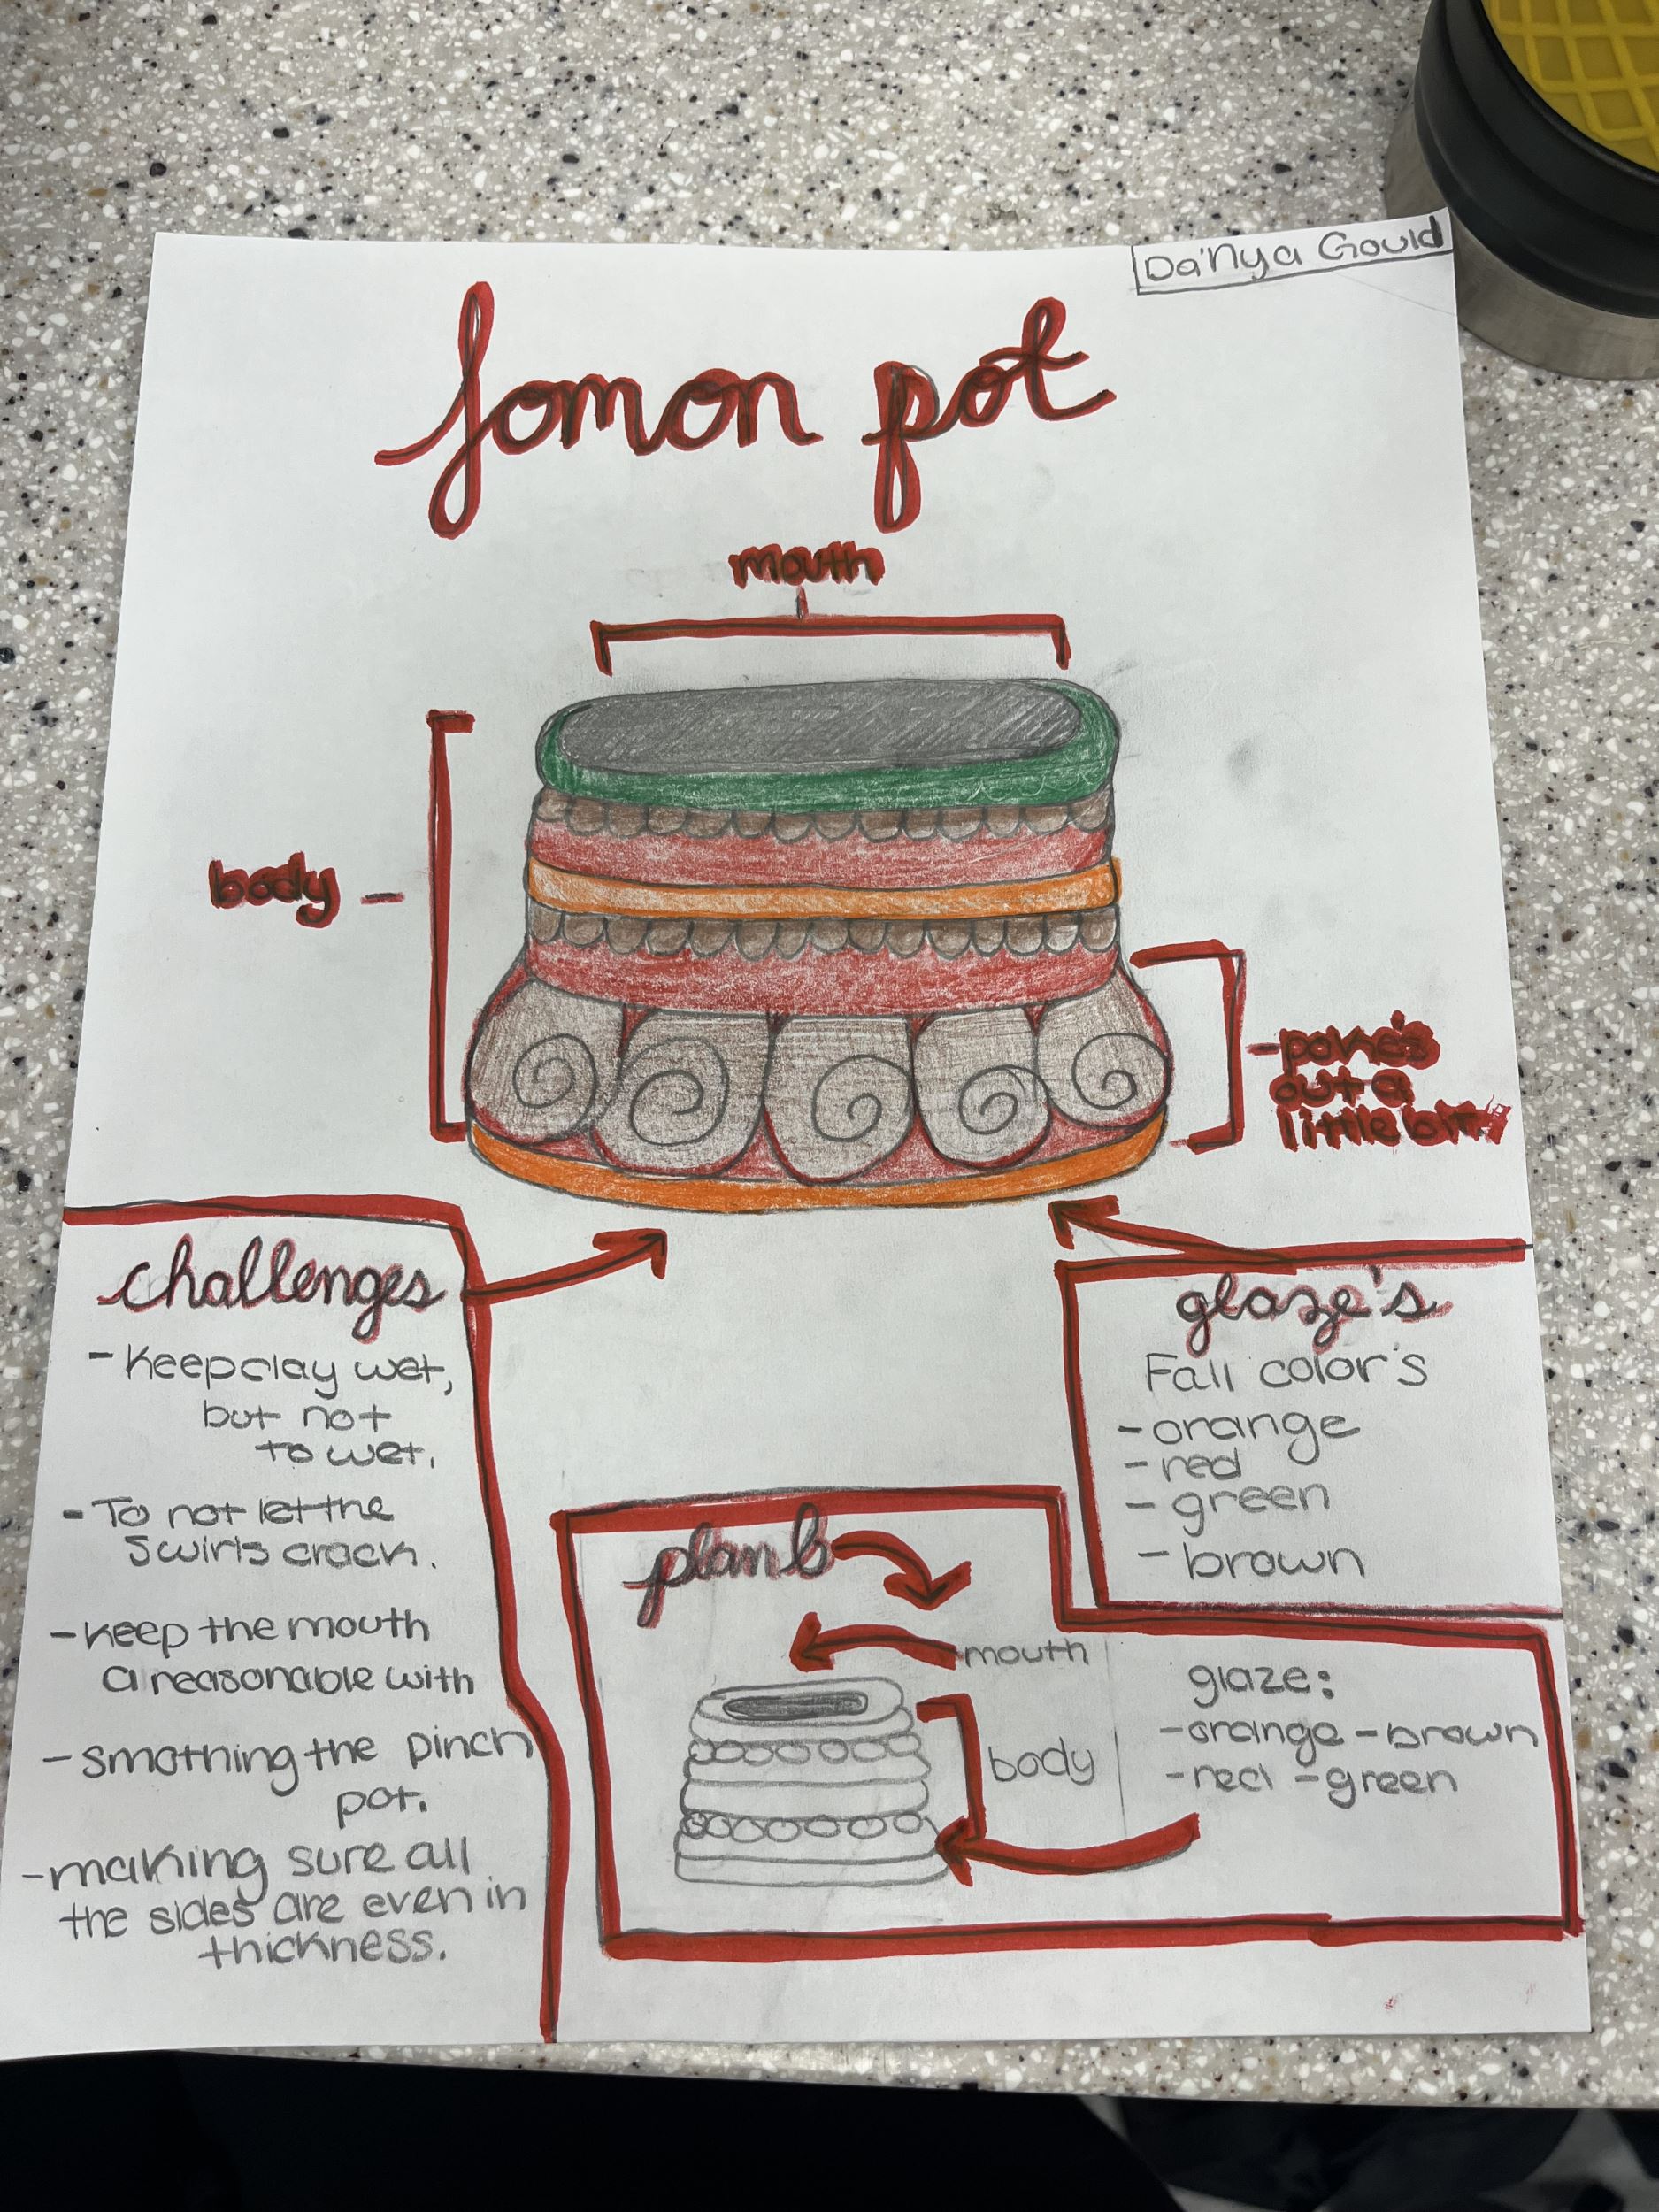 Da'Nya Gould
Jomon pot
mouth
body -
- poke's
out a
little bit
challenges
- Keep clay wet,
but not
to wet.
- To not let the
swirls crack.
- keep the mouth
a reasonable with
- smothing the pinch
pot.
- making sure all
the sides are even in
thickness.
glaze's
Fall color's
- orange
- red
- green
- brown
plan b
mouth
body
glaze:
- orange - brown
- red - green